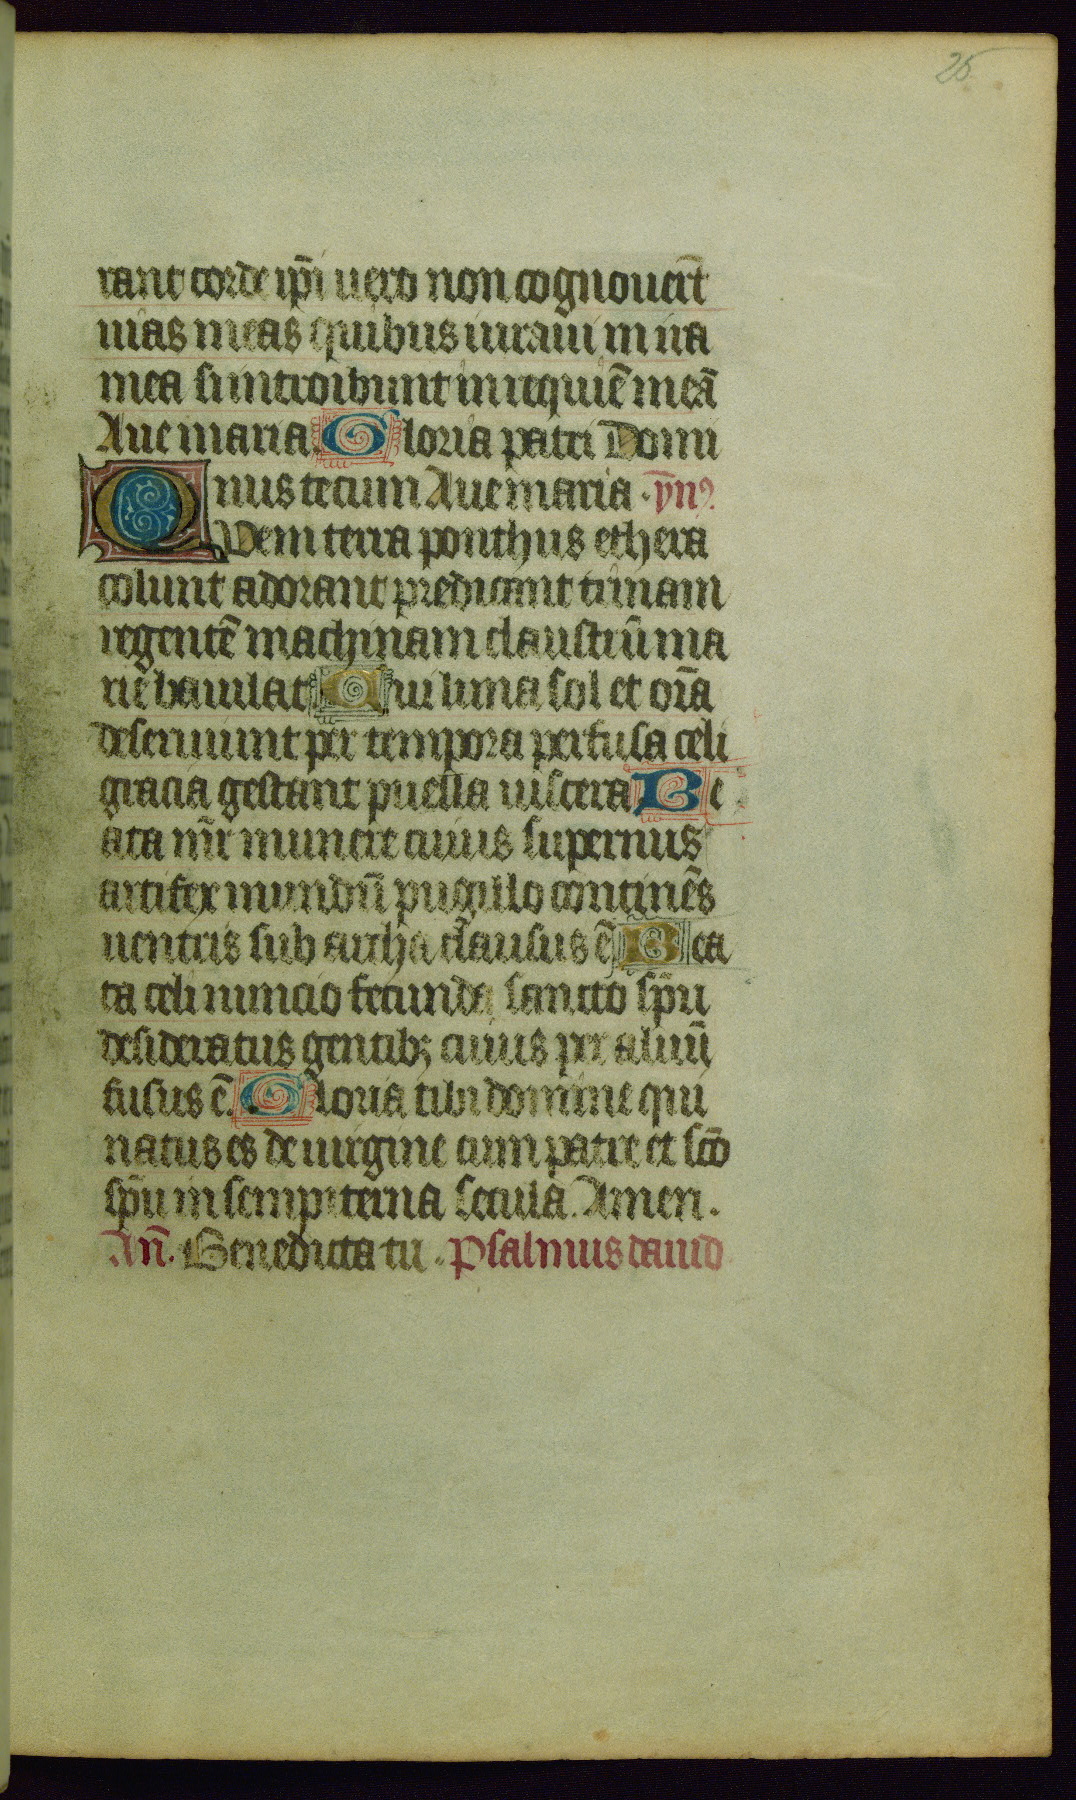 25
rant corde ip̄i uero non cognouer̄t
uias meas quibus iuraui in ira
mea si introibunt in requiē meā
Aue maria. Gloria patri Domi
nus tecum Aue maria . yn̄ꝰ.
Quem terra ponthus ethera
colunt adorant predicant trinam
regentē machinam claustrū ma
rie baiulat Cui luna sol et om̄a
deseruiunt per tempora perfusa celi
gracia gestant puelle uiscera Be
ata mr̄ munere cuius supernus
artifex mundū pugillo continēs
uentris sub archa clausus ē Bea
ta celi nuncio fecunda sancto sp̄u
desideratus gentibꝫ cuius per aluū
fusus ē. Gloria tibi domine qui
natus es de uirgine cum patre et sc̄o
sp̄u in sempiterna secula. Amen.
An̄. Benedicta tu . Psalmus dauid